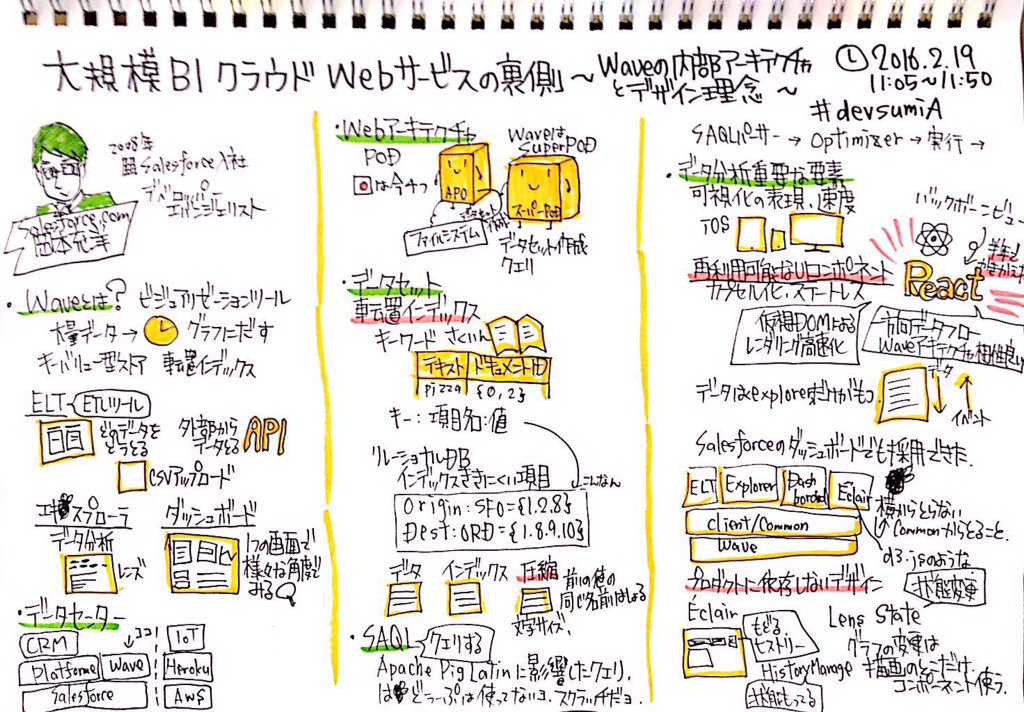 大規模BIクラウドWebサービスの裏側〜Waveの内部アーキテクチャ
とデザイン理念〜
2016.2.19
11:05〜11:50
#devsumiA
2008年
Salesforce入社
デベロッパー
エバンジェリスト
Salesforce.com
岡本充洋
・Waveとは? ビジュアリゼーションツール
大量データ→グラフにだす
キーバリュー型ストア 転置インデックス
ELT ETLツール
どのデータを
どうとる
外部から
データとる
API
CSVアップロード
エクスプローラ
データ分析
レンズ
ダッシュボード
1つの画面で
様々な角度で
みる
・データセンター
CRM
ココ!
IoT
Platforme
Wave
Heroku
Salesforce
AWS
・Webアーキテクチャ
POD
は今4つ
Waveは
SuperPOD
APO
スーパーPod
ファイルシステム
データセット作成
クエリ
・データセット
転置インデックス
キーワード さくいん
テキスト ドキュメントID
pizza {0,2}
キー:項目名:値
リレーショナルDB
インデックスききにくい項目
こんなん
Origin:SFO={1.2.8}
Dest:ORD={1.8.9.10}
データ インデックス 圧縮
前の値の
同じ名前はしょる
文字サイズ、
・SAQL クエリする
Apache Pig Latinに影響したクエリ。
は どぅーぷは使ってないヨ、スクラッチだヨ。
SAQLパーサー→Optimizer→実行→
・データ分析重要な要素
可視化の表現、速度
TOS
バックボーンビュー
半年で
かきかえた
React
再利用可能なUIコンポネント
カプセル化、ステートレス
仮想DOMによる
レンダリング高速化
一方向データフロー
Waveアーキテクチャ相性良い
データはexploreだけがもつ
データ
イベント
Salesforceのダッシュボードでも採用できた.
ELT
Explorer
Dash
borded
Eclair
横からとらない
Commonからとること
client/Common
Wave
d3.jsのような
プロダクトに依存しないデザイン
状態変更
Éclair
もどる
ヒストリー
History Manage
状態もってる
Lens State
グラフの変更は
描画のとこだけ.
コンポーネント使う.